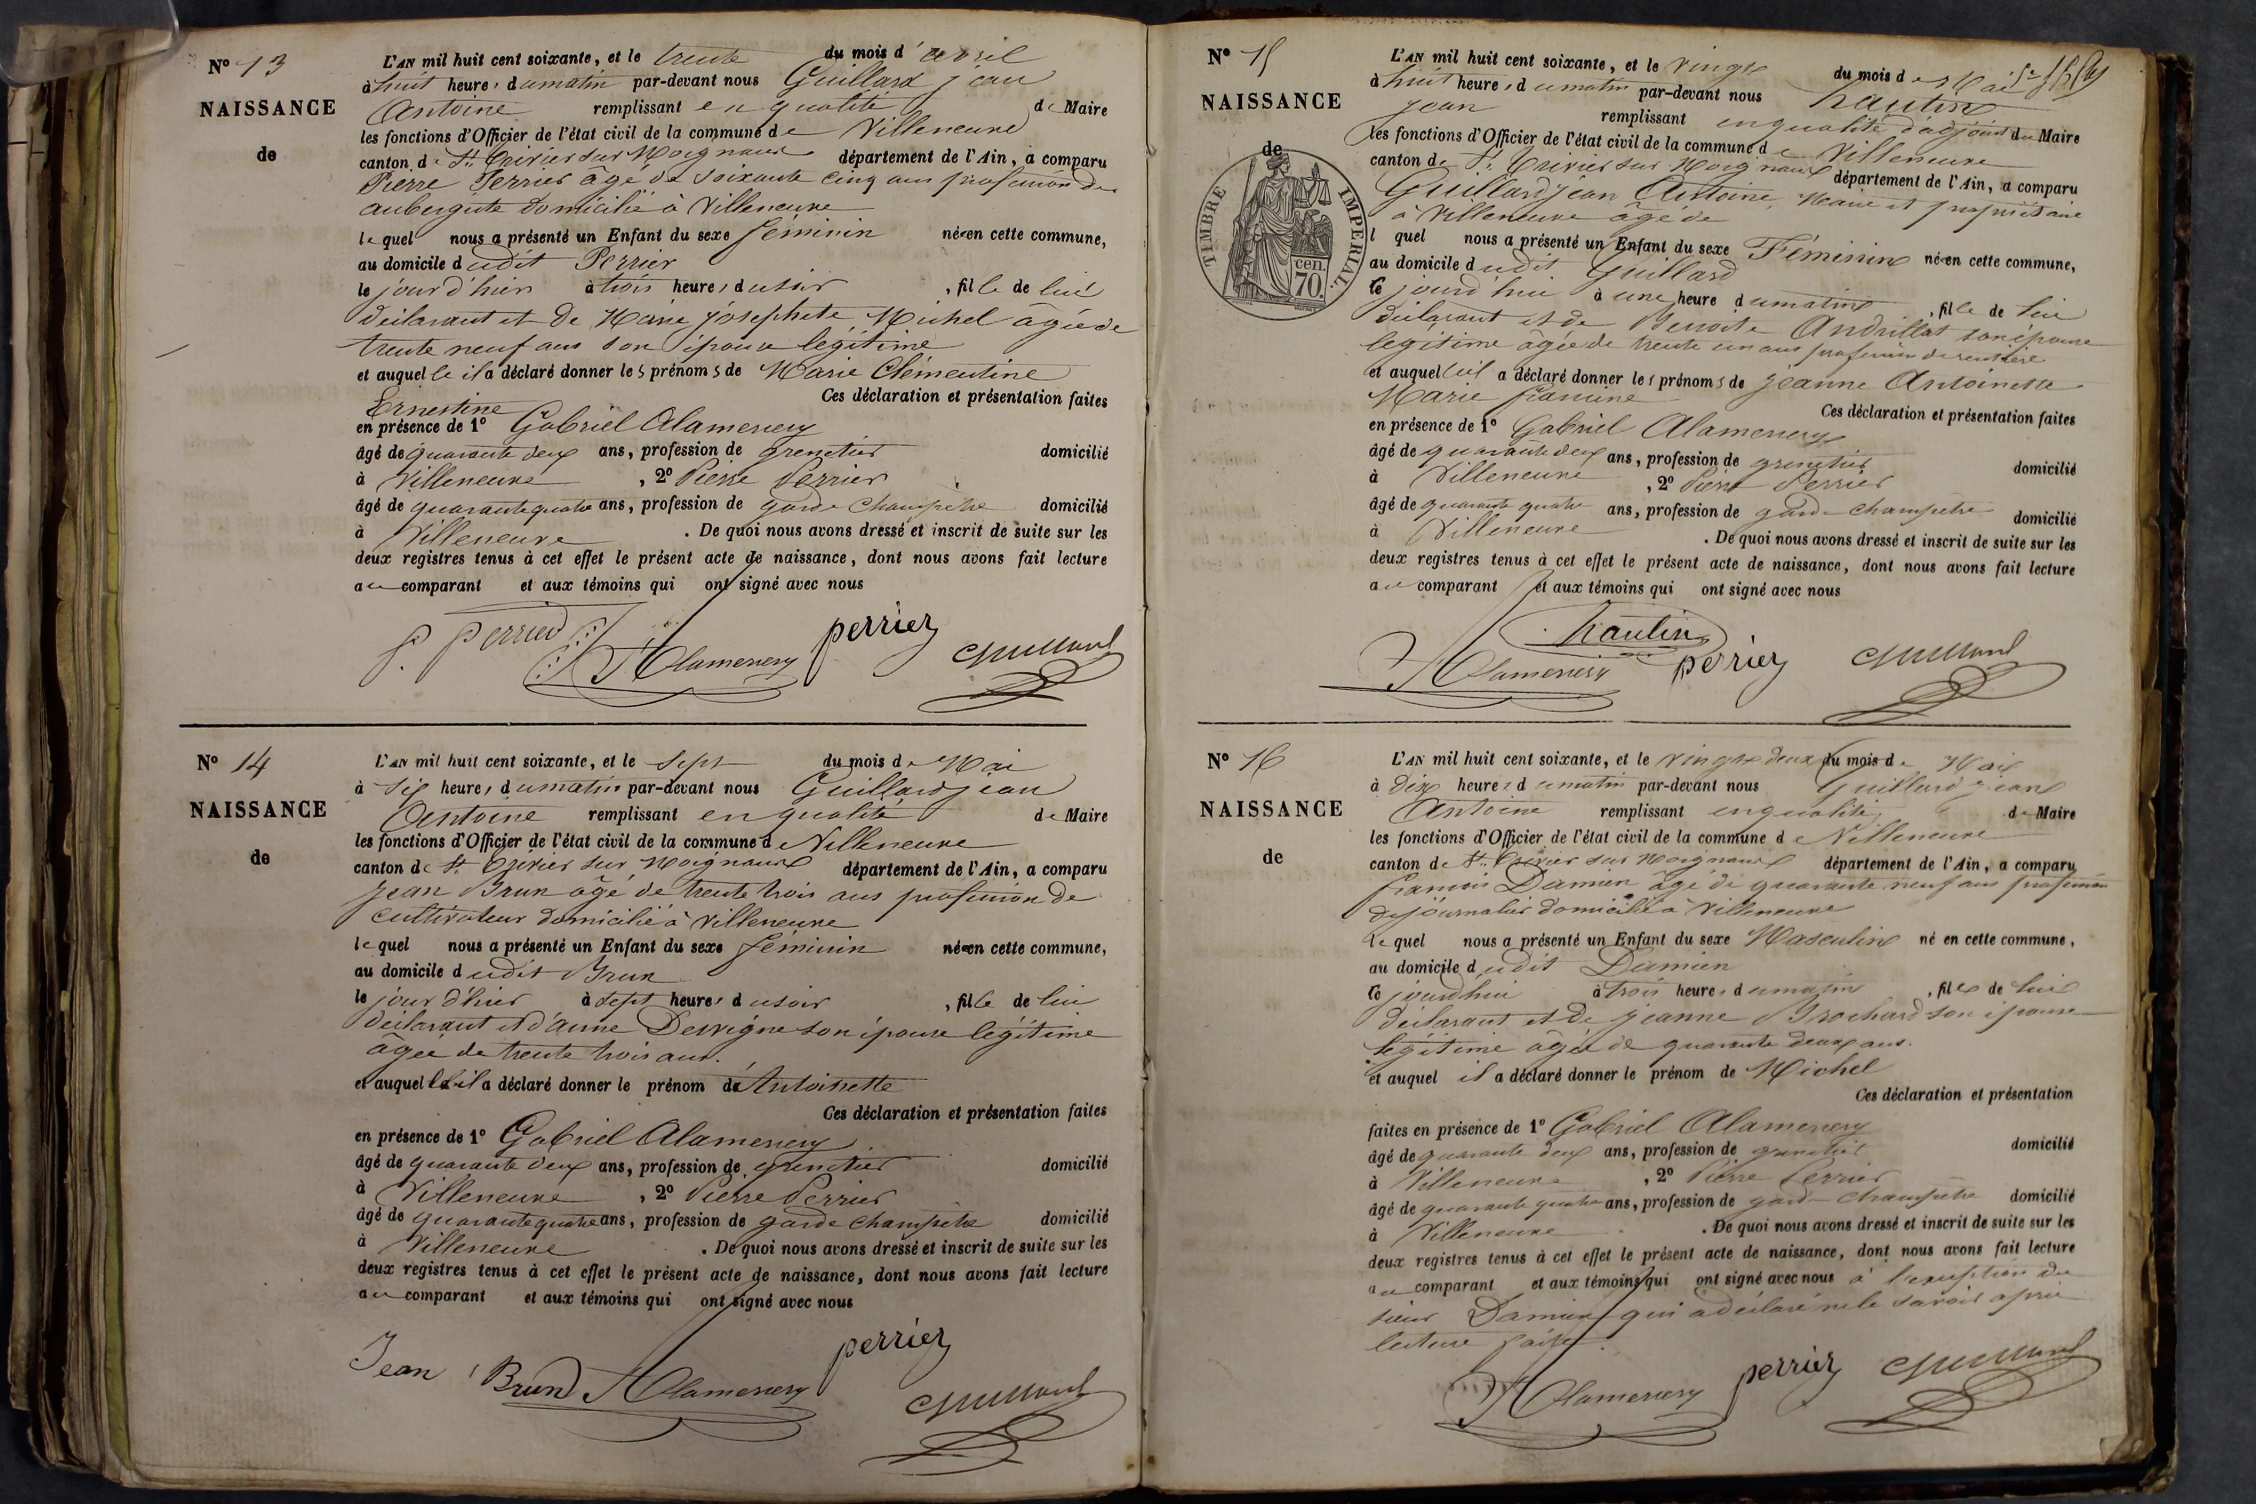 N° 13
NAISSANCE
de
L'AN mil huit cent soixante, et le trente du mois d'avril
à huit heures du matin par-devant nous Guillard jean
Antoine remplissant en qualité de Maire
les fonctions d'Officier de l'état civil de la commune de Villeneuve
canton de St Trivier sur Moignans département de l'Ain, a comparu
Pierre Perrier âgé de soixante cinq ans profession de
aubergiste domicilié à Villeneuve
lequel nous a présenté un Enfant du sexe féminin née en cette commune,
au domicile dudit Perrier
le jour d'hier à trois heures du soir, fille de lui
déclarant et de Marie josephete Michel âgée de
trente neuf ans son épouse légitime
et auquelle il a déclaré donner les prénoms de Marie Clémentine
Ernestine Ces déclaration et présentation faites
en présence de 1° Gabriel Alamercery
âgé de quarante deux ans, profession de grenetier domicilié
à Villeneuve, 2° Pierre Perrier
âgé de quarante quatre ans, profession de garde champêtre domicilié
à Villeneuve. De quoi nous avons dressé et inscrit de suite sur les
deux registres tenus à cet effet le présent acte de naissance, dont nous avons fait lecture
au comparant et aux témoins qui ont signé avec nous
P. Perrier Alamercery perrier Guillard
N° 14
NAISSANCE
de
L'AN mil huit cent soixante, et le sept du mois de Mai
à six heures du matin par-devant nous Guillard jean
Antoine remplissant en qualité de Maire
les fonctions d'Officier de l'état civil de la commune de Villeneuve
canton de St Trivier sur Moignans département de l'Ain, a comparu
jean Brun âgé de trente trois ans profession de
cultivateur domicilié à Villeneuve
lequel nous a présenté un Enfant du sexe féminin née en cette commune,
au domicile dudit Brun
le jour d'hier à sept heures du soir, fille de lui
déclarant et d'anne Desvigne son épouse légitime
âgée de trente trois ans.
et auquelle il a déclaré donner le prénom de Antoinette
Ces déclaration et présentation faites
en présence de 1° Gabriel Alamercery
âgé de quarante deux ans, profession de grenetier domicilié
à Villeneuve, 2° Pierre Perrier
âgé de quarante quatre ans, profession de garde champêtre domicilié
à Villeneuve. De quoi nous avons dressé et inscrit de suite sur les
deux registres tenus à cet effet le présent acte de naissance, dont nous avons fait lecture
au comparant et aux témoins qui ont signé avec nous
Jean Brun Alamercery perrier Guillard
N° 15
NAISSANCE
de
TIMBRE IMPERIAL
70 cen.
L'AN mil huit cent soixante, et le vingt du mois de Mai
à huit heures du matin par-devant nous Trautin
jean remplissant en qualité d'adjoint du Maire
les fonctions d'Officier de l'état civil de la commune de Villeneuve
canton de St Trivier sur Moignans département de l'Ain, a comparu
Guillard jean Antoine, Maire et propriétaire
à Villeneuve âgé de
l quel nous a présenté un Enfant du sexe Féminin née en cette commune,
au domicile dudit Guillard
ce jourd'hui à une heure du matin, fille de lui
déclarant et de Benoite Andrillat son épouse
légitime âgée de trente un ans profession de rentière
et auquelle il a déclaré donner les prénoms de jeanne Antoinette
Marie francine Ces déclaration et présentation faites
en présence de 1° Gabriel Alamercery
âgé de quarante deux ans, profession de grenetier domicilié
à Villeneuve, 2° Pierre Perrier
âgé de quarante quatre ans, profession de garde champêtre domicilié
à Villeneuve. De quoi nous avons dressé et inscrit de suite sur les
deux registres tenus à cet effet le présent acte de naissance, dont nous avons fait lecture
au comparant et aux témoins qui ont signé avec nous
Trautin
Alamercery perrier Guillard
N° 16
NAISSANCE
de
L'AN mil huit cent soixante, et le vingt deux du mois de Mai
à dix heures du matin par-devant nous Guillard jean
Antoine remplissant en qualité de Maire
les fonctions d'Officier de l'état civil de la commune de Villeneuve
canton de St Trivier sur Moignans département de l'Ain, a comparu
francois Damien âgé de quarante neuf ans profession
de journalier domicilié à Villeneuve
lequel nous a présenté un Enfant du sexe Masculin né en cette commune,
au domicile dudit Damien
ce jourdhui à trois heures du matin, fils de lui
déclarant et de jeanne Brochard son épouse
légitime âgée de quarante deux ans.
et auquel il a déclaré donner le prénom de Michel
Ces déclaration et présentation
faites en présence de 1° Gabriel Alamercery
âgé de quarante deux ans, profession de grenetier domicilié
à Villeneuve, 2° Pierre Perrier
âgé de quarante quatre ans, profession de garde champêtre domicilié
à Villeneuve. De quoi nous avons dressé et inscrit de suite sur les
deux registres tenus à cet effet le présent acte de naissance, dont nous avons fait lecture
au comparant et aux témoins qui ont signé avec nous à l'exception du
sieur Damien qui a déclaré ne le savoir après
lecture faite.
Alamercery perrier Guillard